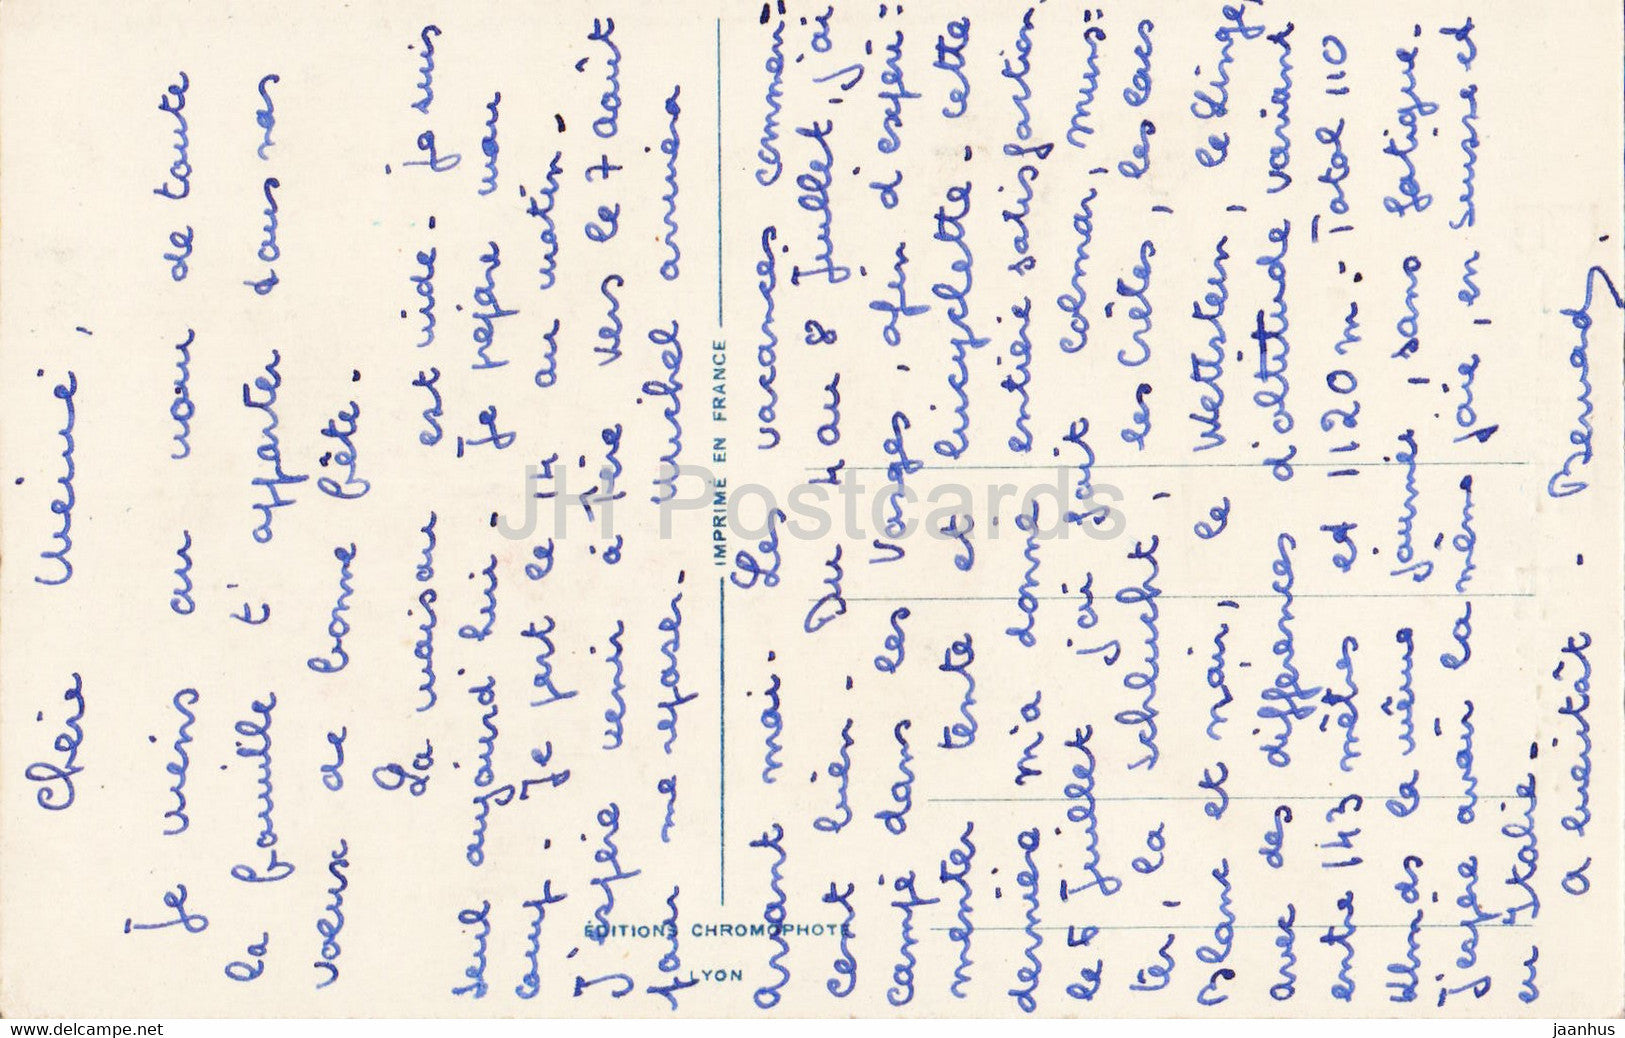 Chère Mémé,
Je viens au nom de toute
la famille t'apporter tous nos
voeux de bonne fête.
La maison est vide. Je suis
seul aujourd'hui. Je prépare mon
camp. Je part le 14 au matin.
J'espère venir à Père vers le 7 août
pour me reposer. Michel arrivera
avant moi. Les vacances commen=
cent bien. Du 4 au 8 Juillet, j'ai
campé dans les Vosges, afin d'expéri=
menter tente et bicyclette. cette
dernière m'a donné entière satisfaction.
le 5 Juillet j'ai fait Colmar, Muns=
ter, la Schlucht, les Crêtes, les lacs
Blanc et Noir, le Wettstein, le Linge,
avec des différences d'altitude variant
entre 143 mètres et 1120 m. Total 110
Kms la même journée, sans fatigue.
J'espère avoir la même joie, en Suisse et
en Italie.
A bientôt. Bernard.
IMPRIMÉ EN FRANCE
ÉDITIONS CHROMOPHOTE
LYON
JH Postcards
www.delcampe.net
jaanhus